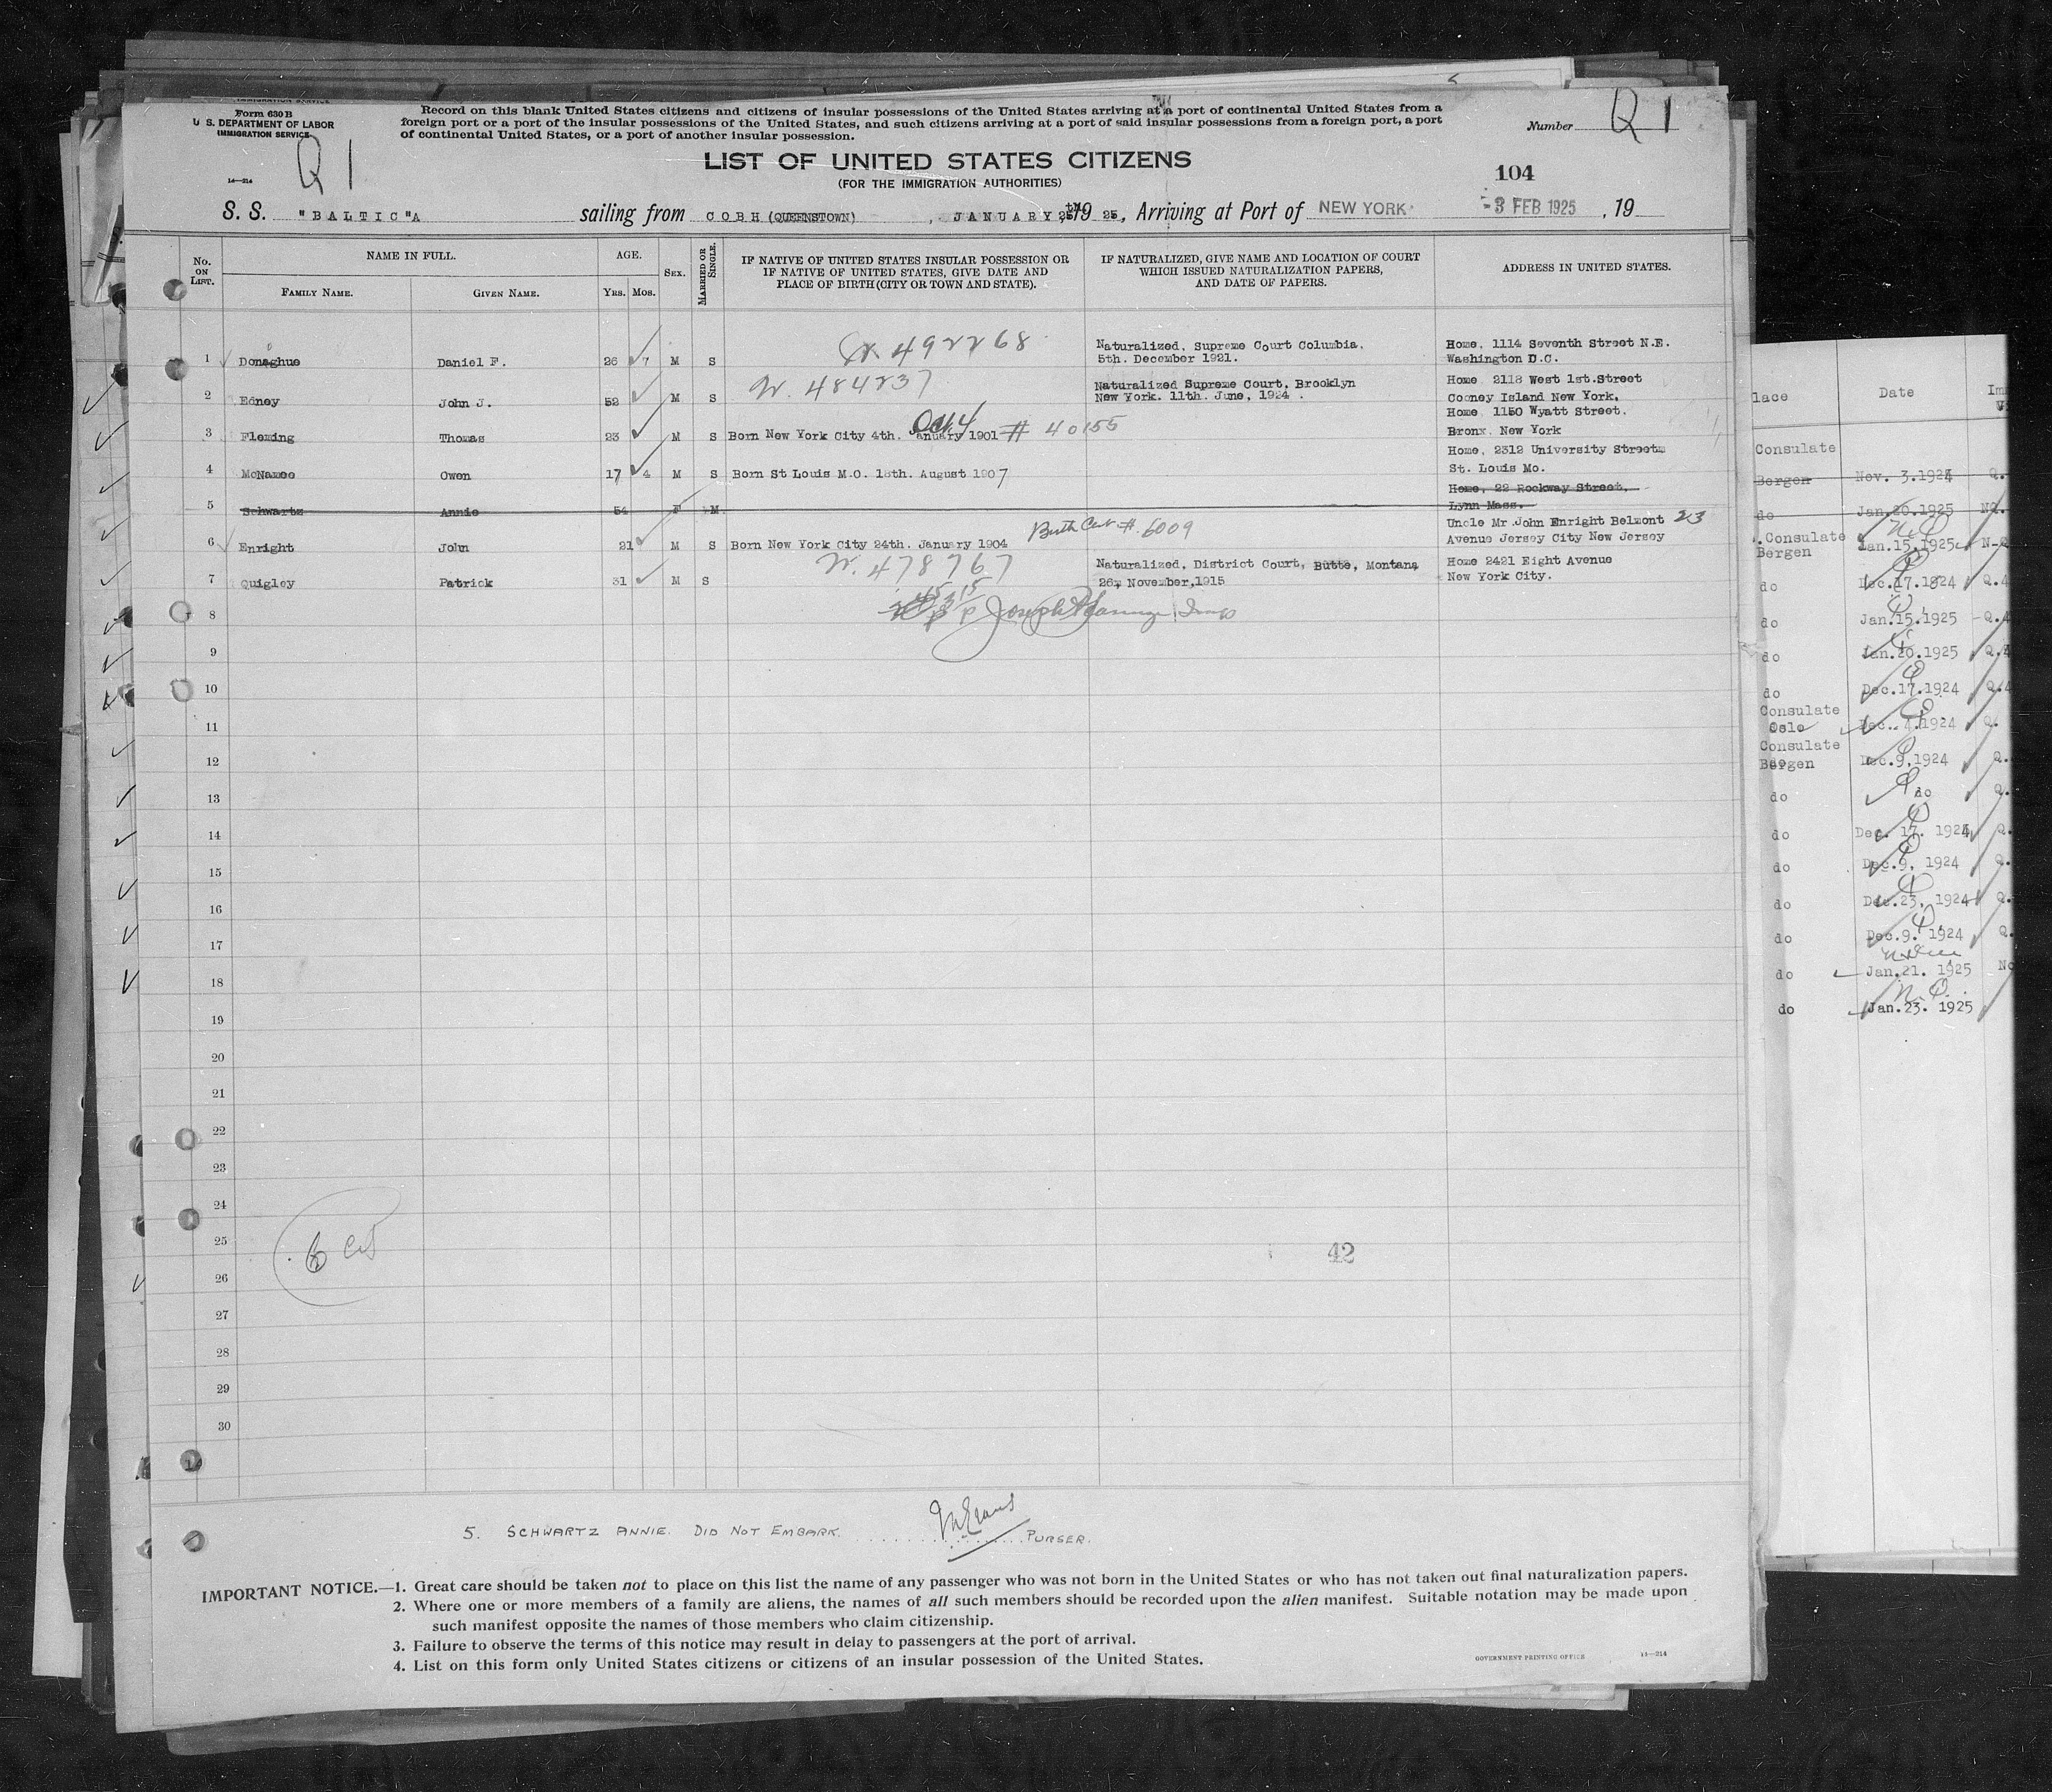 IMMIGRATION SERVICE
Form 630 B
U. S. DEPARTMENT OF LABOR
IMMIGRATION SERVICE
Record on this blank United States citizens and citizens of insular possessions of the United States arriving at a port of continental United States from a
foreign port or a port of the insular possessions of the United States, and such citizens arriving at a port of said insular possessions from a foreign port, a port
of continental United States, or a port of another insular possession.
Number Q 1
Q 1
14—214
LIST OF UNITED STATES CITIZENS
(FOR THE IMMIGRATION AUTHORITIES)
104
S. S. "BALTIC"A sailing from COBH (QUEENSTOWN), JANUARY, 25th 19 25, Arriving at Port of NEW YORK -3 FEB 1925, 19
No. ON LIST.
NAME IN FULL.
FAMILY NAME. GIVEN NAME.
AGE.
YRS. MOS.
SEX.
MARRIED OR SINGLE.
IF NATIVE OF UNITED STATES INSULAR POSSESSION OR
IF NATIVE OF UNITED STATES, GIVE DATE AND
PLACE OF BIRTH (CITY OR TOWN AND STATE).
IF NATURALIZED, GIVE NAME AND LOCATION OF COURT
WHICH ISSUED NATURALIZATION PAPERS,
AND DATE OF PAPERS.
ADDRESS IN UNITED STATES.
492268
Naturalized, Supreme Court Columbia. Home, 1114 Seventh Street N.E.
1 Donaghue Daniel F. 26 7 M S 5th. December 1921. Washington D.C.
484237
Naturalized Supreme Court, Brooklyn Home 2118 West 1st.Street
2 Edney John J. 52 M S New York. 11th. June, 1924 . Cooney Island New York,
Home 1150 Wyatt Street.
3 Fleming Thomas 23 M S Born New York City 4th. January 1901 # 40155 Bronx. New York
Oct 4
Home, 2312 University Street
4 McNamee Owen 17 4 M S Born St Louis M.O. 18th. August 1907 St. Louis Mo.
Home, 22 Rockway Street,
5 Schwartz Annie 54 F M Lynn Mass.
Birth Cert #. 6009 Uncle Mr John Enright Belmont 23
6 Enright John 21 M S Born New York City 24th. January 1904 Avenue Jersey City New Jersey
478767
Naturalized, District Court, Butte, Montana Home 2421 Eight Avenue
7 Quigley Patrick 31 M S 26, November,1915 New York City.
8
9
10
11
12
13
14
15
16
17
18
19
20
21
22
23
24
25
26
27
28
29
30
42
5. SCHWARTZ ANNIE. DID NOT EMBARK. PURSER.
IMPORTANT NOTICE.—1. Great care should be taken not to place on this list the name of any passenger who was not born in the United States or who has not taken out final naturalization papers.
2. Where one or more members of a family are aliens, the names of all such members should be recorded upon the alien manifest. Suitable notation may be made upon
such manifest opposite the names of those members who claim citizenship.
3. Failure to observe the terms of this notice may result in delay to passengers at the port of arrival.
4. List on this form only United States citizens or citizens of an insular possession of the United States.
GOVERNMENT PRINTING OFFICE 14—214
lace Date
Consulate
Bergen Nov. 3.1924 Q.
do Jan.20.1925 NQ.
Consulate
Bergen Jan.15.1925 N-Q
do Dec.17.1924 Q.4
do Jan.15.1925 Q.4
do Jan.20.1925 Q.4
do Dec.17.1924 Q.4
Consulate
Oslo Dec. 4.1924 Q.
Consulate
Bergen Dec.9,1924 Q.
do do Q.
do Dec. 17. 1924 Q.
do Dec.9, 1924 Q.
do Dec.23, 1924 Q.
do Dec.9. 1924 Q.
do Jan.21. 1925 No
do Jan.23. 1925